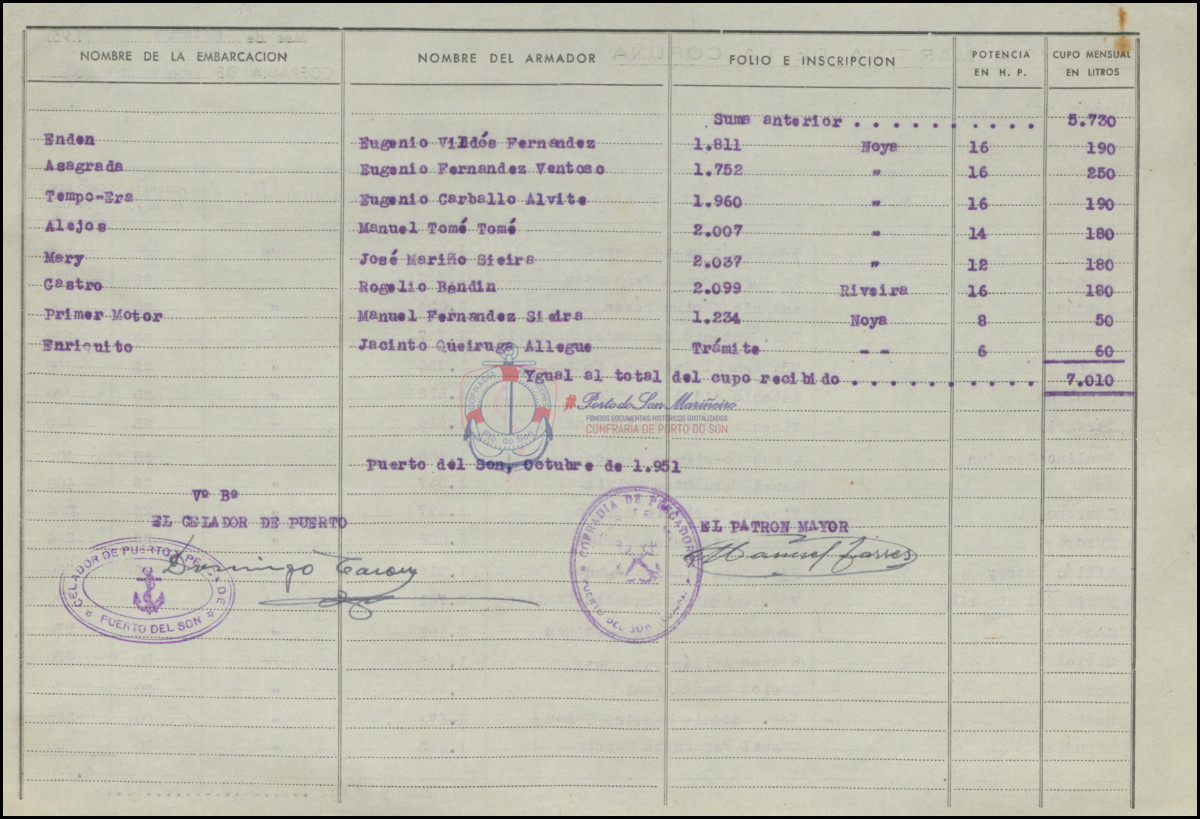 NOMBRE DE LA EMBARCACION NOMBRE DEL ARMADOR FOLIO E INSCRIPCION POTENCIA EN H. P. CUPO MENSUAL EN LITROS
Suma anterior . . . . . . . . . . 5.730
Enden Eugenio Villdós Fernandez 1.811 Noya 16 190
Asagrada Eugenio Fernandez Ventoso 1.752 " 16 250
Tempo-Era Eugenio Carballo Alvite 1.960 " 16 190
Alejos Manuel Tomé Tomé 2.007 " 14 180
Mary José Mariño Sieira 2.037 " 12 180
Castro Rogelio Bendin 2.099 Riveira 16 180
Primer Motor Manuel Fernandez Sieira 1.234 Noya 8 50
Enriquito Jacinto Queiruga Allegue Trámite - - 6 60
Ygual al total del cupo recibido . . . . . . . . . . 7.010
COFRADIA
Pto. do Son
#Porto do Son Mariñeiro
FONDOS DOCUMENTAIS HISTÓRICOS DIGITALIZADOS
CONFRARÍA DE PORTO DO SON
Puerto del Son, Octubre de 1.951
Vº Bº
EL CELADOR DE PUERTO
EL PATRON MAYOR
CELADOR DE PUERTO Y PESCA DE
PUERTO DEL SON
Domingo
COFRADIA DE PESCADORES
PUERTO DEL SON
Manuel